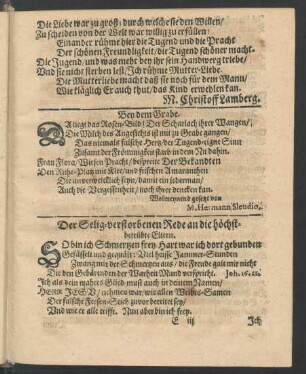 Die Liebe war zu groß; durch welche sie den Willen/
Zu scheiden von der Welt war willig zu erfüllen:
Einander rühme hier die Tugend und die Pracht
Der schönen Freundligkeit/ die Tugend schöner macht.
Die Jugend/ und was mehr dey ihr sein Handwerg triebe/
Und sie nicht sterben lest. Ich rühme Mutter-Liebe.
Die Mutterliebe macht daß sie noch für dem Mann/
Wie kläglich Er auch thut/ das Kind erwehlen kan.
M. Christoff Lamberg.
Bey dem Grabe.
DA liegt das Rosen-Bild! Der Scharlach ihrer Wangen/
Die Milch des Angesichts ist mit zu Grabe gangen/
Das niemals falsche Hertz der Tugend-eigne Sinn
Zusamt der Frömmigkeit starb in dem Nu dahin.
Frau Flora/ Wiesen Pracht/ bespreite Der Bekandten
Den Ruhe-Platz mit Klee/ und frischen Amaranthen
Die unverwelcklich seyn/ damit ein jederman/
Auch die Vergessenheit/ noch ihrer dencken kan.
Wolmeynend gesetzt von
M. Hermann
Der Selig-verstorbenen Rede an die höchst-
betrübte Eltern.
SO bin ich Schmertzen frey. Hart war ich dort gebunden
Gefässelt und gequält: Viel heisse Jammer-Stunden
Zwang mir der Schmertzen aus/ die Freude galt mir nicht
Die den Gebundnen der Warheit Mund verspricht. Joh. 16. 22.
Ich als dein wahres Glied must auch in deinem Namen/
Herr JESU/ nehmen war/ wie allen Weibes-Samen
Der falsche Fersen-Stich zuvor bereitet sey/
Und wie er alle trifft. Nun aber bin ich frey.
E iij
Ich